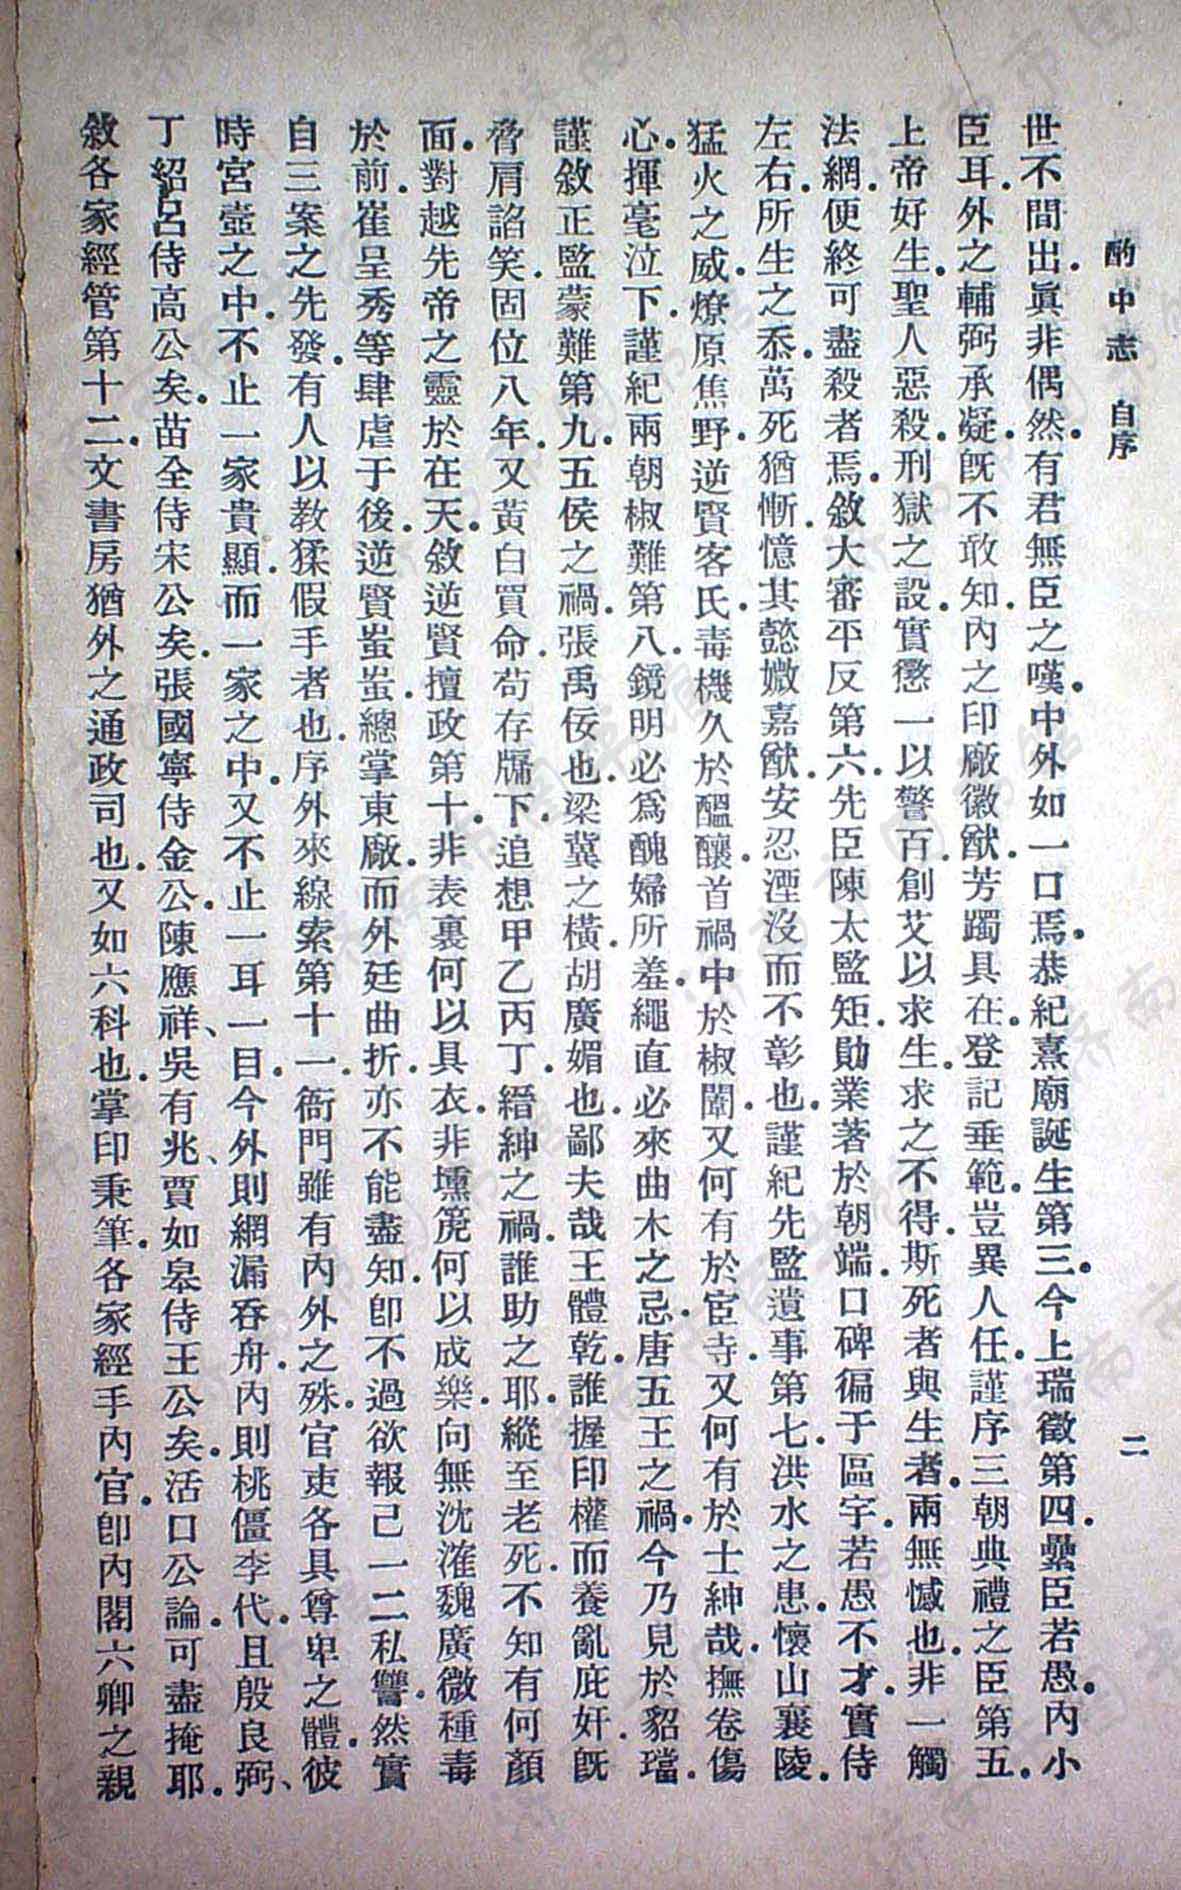 酌中志 自序 二
世不間出.眞非偶然.有君無臣之嘆.中外如一口焉.恭紀熹廟誕生第三.今上瑞徵第四.纍臣若愚.內小
臣耳.外之輔弼承凝.旣不敢知.內之印廠徽猷.芳躅具在.登記垂範.豈異人任.謹序三朝典禮之臣第五.
上帝好生.聖人惡殺.刑獄之設.實懲一以警百.創艾以求生.求之不得.斯死者與生者.兩無憾也.非一觸
法網.便終可盡殺者焉.敘大審平反第六.先臣陳太監矩.勛業著於朝端.口碑徧于區宇.若愚不才.實侍
左右.所生之忝.萬死猶慚.憶其懿媺嘉猷.安忍湮沒而不彰也.謹紀先監遺事第七.洪水之患.懷山襄陵.
猛火之威.燎原焦野.逆賢客氏.毒機久於醞釀.首禍中於椒闈.又何有於宦寺.又何有於士紳哉.撫卷傷
心.揮毫泣下.謹紀兩朝椒難第八.鏡明必爲醜婦所羞.繩直必來曲木之忌.唐五王之禍.今乃見於貂璫.
謹敘正監蒙難第九.五侯之禍.張禹佞也.梁冀之橫.胡廣媚也.鄙夫哉王體乾.誰握印權而養亂庇奸.旣
脅肩諂笑.固位八年.又黃白買命.苟存牖下.追想甲乙丙丁.縉紳之禍.誰助之耶.縱至老死.不知有何顏
面.對越先帝之靈於在天.敘逆賢擅政第十.非表裏何以具衣.非壎箎何以成樂.向無沈㴶魏廣微種毒
於前.崔呈秀等肆虐于後.逆賢蚩蚩.總掌東廠.而外廷曲折.亦不能盡知.卽不過欲報己一二私讐.然實
自三案之先發.有人以教猱假手者也.序外來線索第十一.衙門雖有內外之殊.官吏各具尊卑之體.彼
時宮壼之中.不止一家貴顯.而一家之中.又不止一耳一目.今外則網漏吞舟.內則桃僵李代.且殷良弼、
丁紹呂侍高公矣.苗全侍宋公矣.張國寧侍金公.陳應祥、吳有兆、賈如皋侍王公矣.活口公論.可盡掩耶.
敘各家經管第十二.文書房猶外之通政司也.又如六科也.掌印秉筆.各家經手內官.卽內閣六卿之親